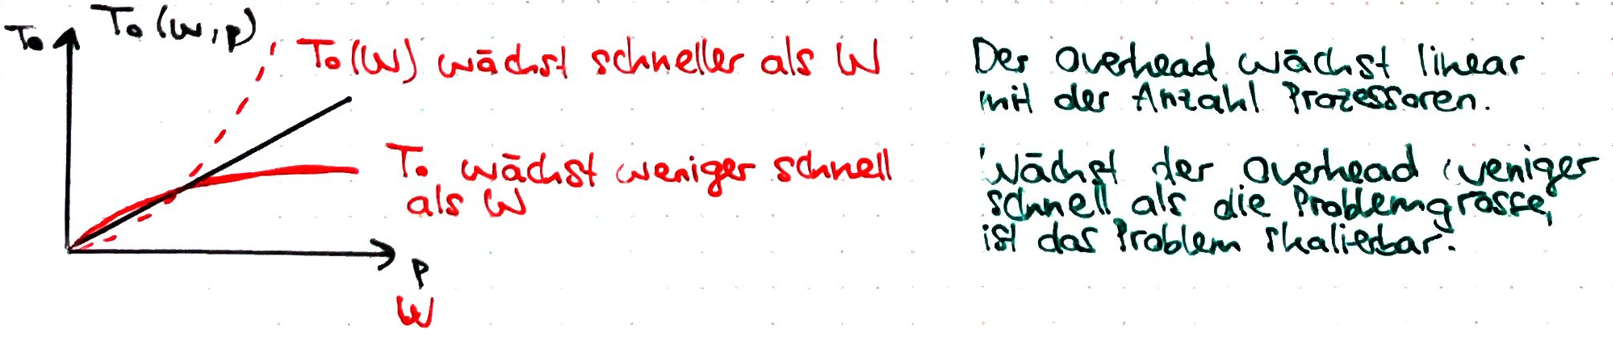 To
To(W,p)
To(W) wächst schneller als W
To wächst weniger schnell
als W
p
W
Der Overhead wächst linear
mit der Anzahl Prozessoren.
Wächst der Overhead weniger
schnell als die Problemgrösse,
ist das Problem skalierbar.